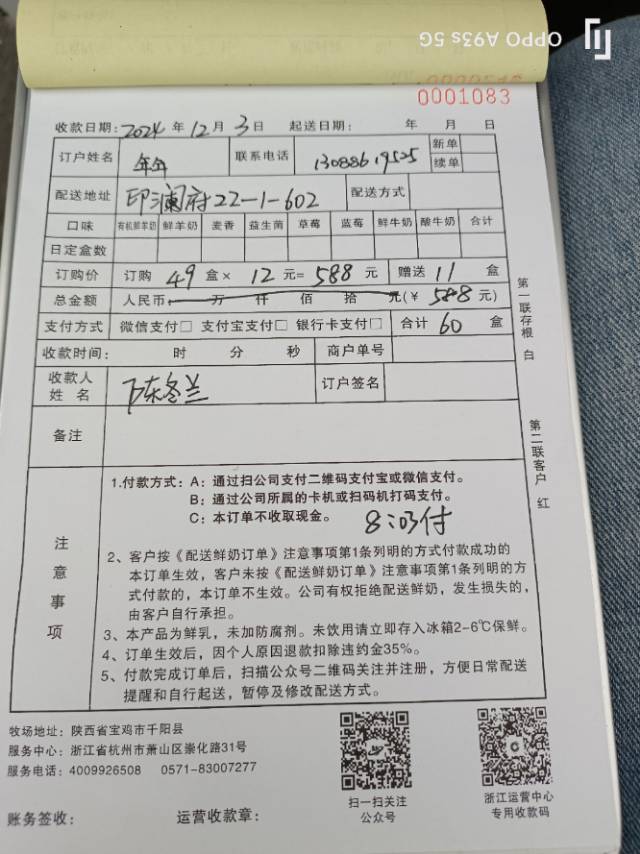 OPPO A93s 5G
0001083
收款日期: 2024 年 12 月 3 日 起送日期: 年 月 日
订户姓名 年年 联系电话 13088619525 新单 续单
配送地址 印澜府22-1-602 配送方式
口味 有机鲜羊奶 鲜羊奶 麦香 益生菌 草莓 蓝莓 鲜牛奶 酸牛奶 合计
日定盒数
订购价 订购 49 盒× 12 元= 588 元 赠送 11 盒
总金额 人民币 万 仟 佰 拾 元(¥ 588 元)
支付方式 微信支付□ 支付宝支付□ 银行卡支付□ 合计 60 盒
收款时间: 时 分 秒 商户单号
收款人姓名 陈冬兰 订户签名
备注
第一联存根 白
第二联客户 红
注意事项
1.付款方式: A: 通过扫公司支付二维码支付宝或微信支付。
B: 通过公司所属的卡机或扫码机打码支付。
C: 本订单不收取现金。
2、客户按《配送鲜奶订单》注意事项第1条列明的方式付款成功的
本订单生效，客户未按《配送鲜奶订单》注意事项第1条列明的方
式付款的，本订单不生效。公司有权拒绝配送鲜奶，发生损失的，
由客户自行承担。
3、本产品为鲜乳，未加防腐剂。未饮用请立即存入冰箱2-6℃保鲜。
4、订单生效后，因个人原因退款扣除违约金35%。
5、付款完成订单后，扫描公众号二维码关注并注册，方便日常配送
提醒和自行起送，暂停及修改配送方式。
牧场地址: 陕西省宝鸡市千阳县
服务中心: 浙江省杭州市萧山区崇化路31号
服务电话: 4009926508 0571-83007277
扫一扫关注
公众号
浙江运营中心
专用收款码
账务签收: 运营收款章: